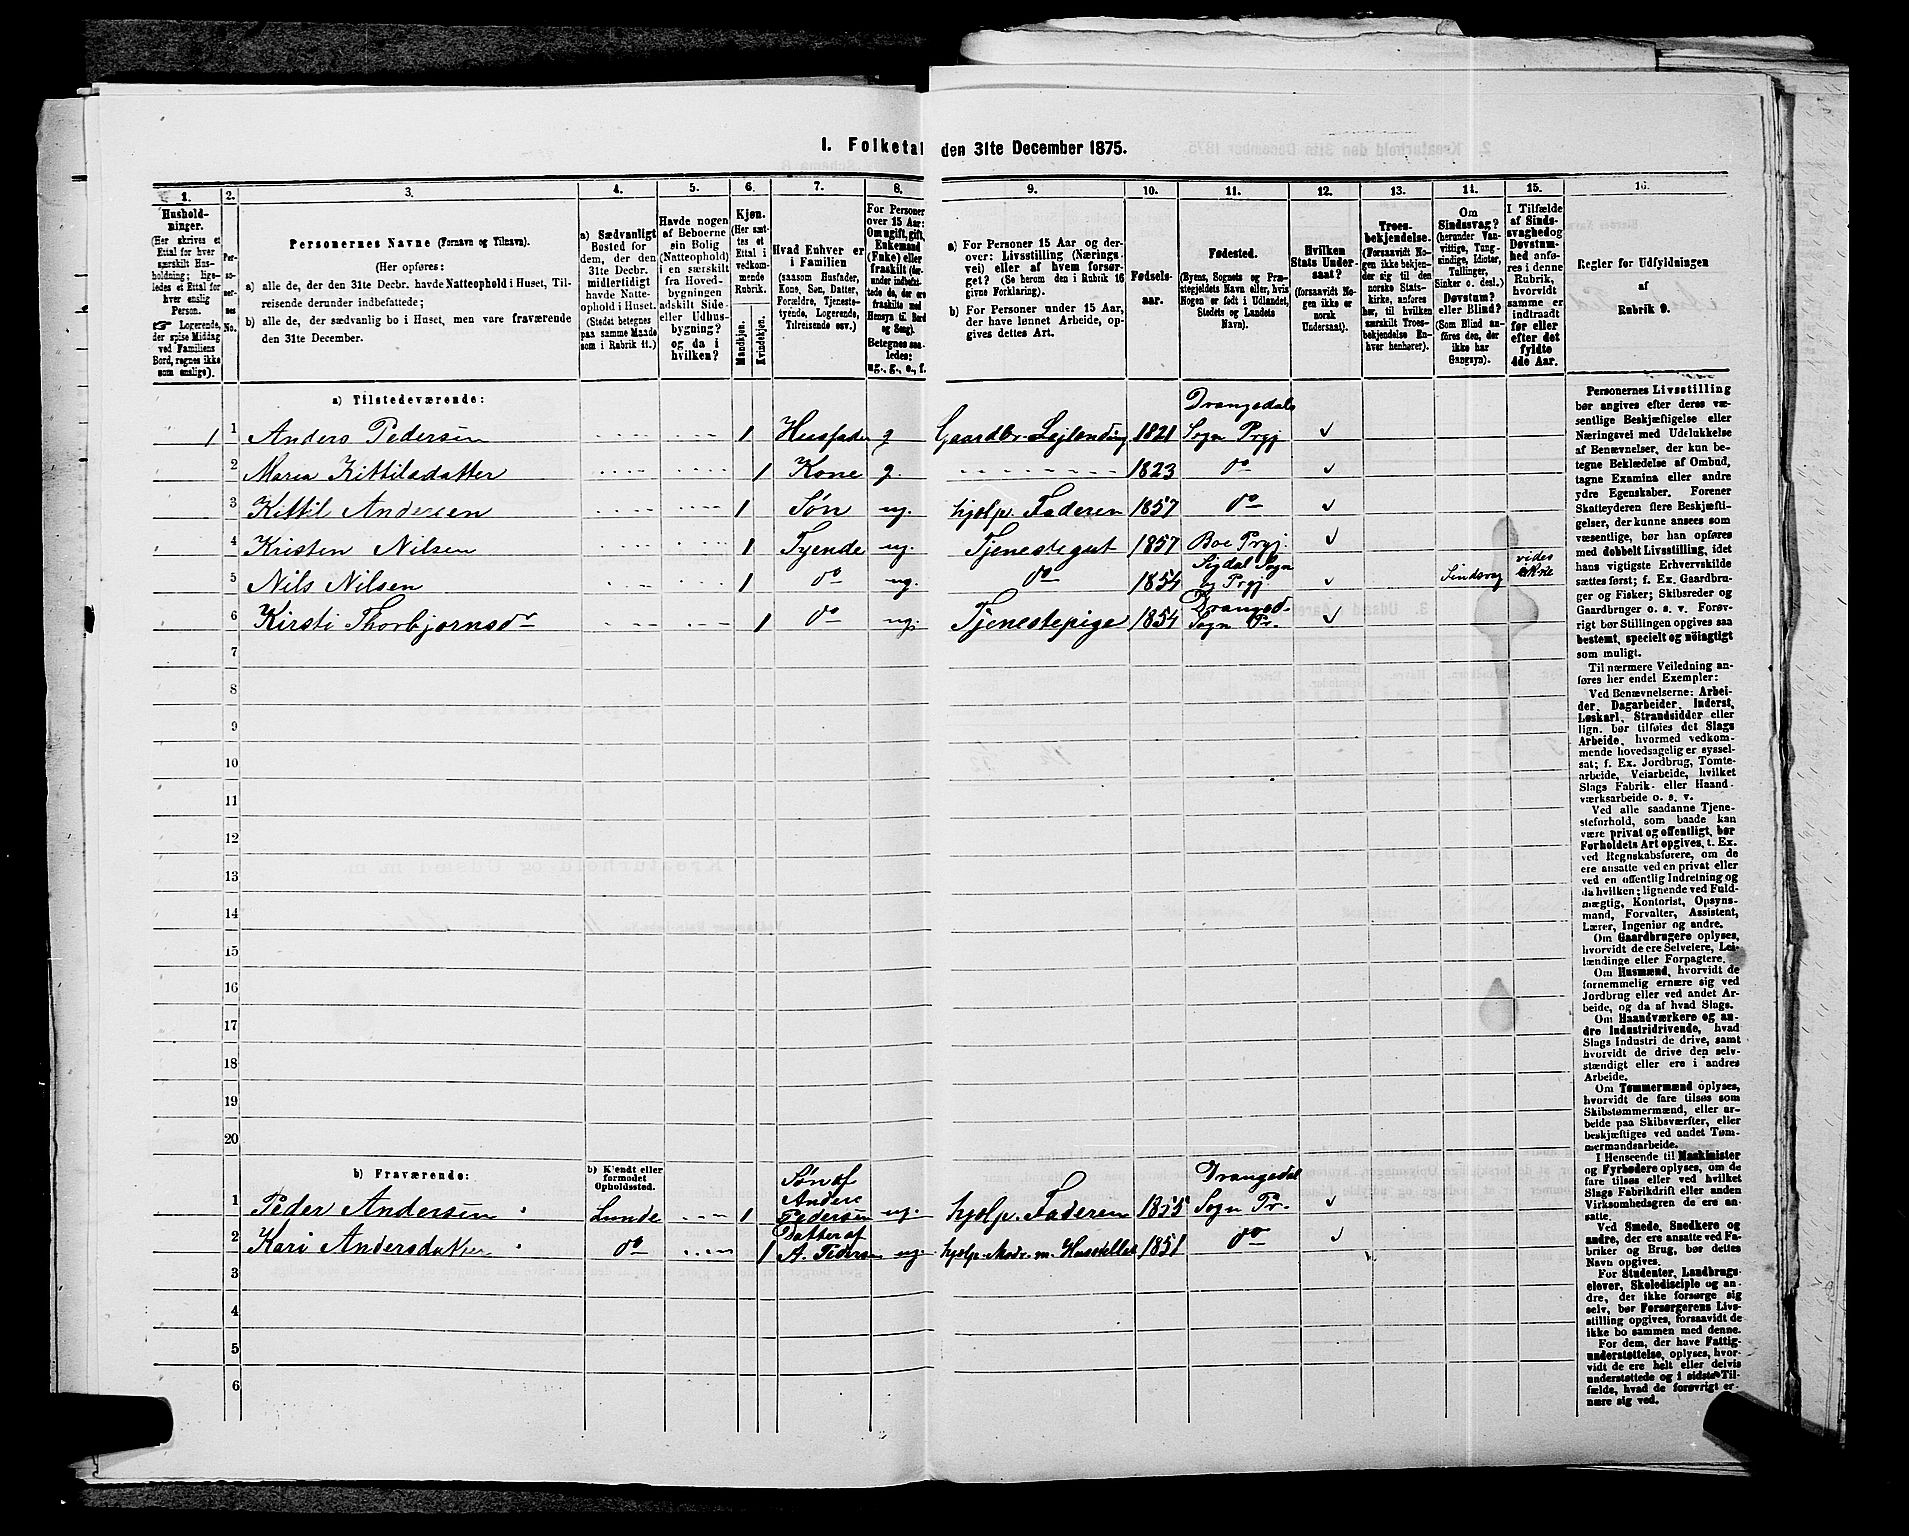 I. Folketal den 31te December 1875.
1. 2. 3. 4. 5. 6. 7. 8. 9. 10. 11. 12. 13. 14. 15. 16.
Husholdninger.
(Her skrives et Ettal for hver særskilt Husholdning; ligeledes et Ettal for hver enslig Person.
☞ Logerende, der spise Middag ved Familiens Bord, regnes ikke som enslige).
Personernes No.
Personernes Navne (Fornavn og Tilnavn).
(Her opføres:
a) alle de, der den 31te Decbr. havde Natteophold i Huset, Tilreisende derunder indbefattede;
b) alle de, der sædvanlig bo i Huset, men vare fraværende den 31te December.
a) Sædvanligt Bosted for dem, der den 31te Decbr. midlertidigt havde Natteophold i Huset.
(Stedet betegnes paa samme Maade som i Rubrik 11.)
Havde nogen af Beboerne sin Bolig (Natteophold) i en særskilt fra Hovedbygningen adskilt Side- eller Udhusbygning? og da i hvilken?
Kjøn.
(Her sættes et Ettal i vedkommende Rubrik.
Mandkjøn. Kvindekjøn.
Hvad Enhver er i Familien
(saasom Husfader, Kone, Søn, Datter, Forældre, Tjenestetyende, Logerende, Tilreisende osv.)
For Personer over 15 Aar: Om ugift, gift, Enkemand (Enke) eller fraskilt
Betegnes saaledes:
ug., g., e., f.
a) For Personer 15 Aar og derover: Livsstilling (Næringsvei) eller af hvem forsørget? (Se herom den i Rubrik 16 givne Forklaring).
b) For Personer under 15 Aar, der have lønnet Arbeide, opgives dettes Art.
Fødselsaar.
Fødested.
(Byens, Sognets og Præstegjeldets Navn eller, hvis Nogen er født i Udlandet, Stedets og Landets Navn).
Hvilken Stats Undersaat?
(forsaavidt Nogen ikke er norsk Undersaat).
Troesbekjendelse.
(Forsaavidt Nogen ikke bekjender sig til den norske Statskirke, anføres her, til hvilken særskilt Troesbekjendelse Enhver henhører).
Om Sindssvag?
(herunder Vanvittige, Tungsindige, Idioter, Tullinger, Sinker o. desl.)
Døvstum? eller Blind?
(Som Blind anføres den, der ikke har Gangsyn).
I Tilfælde af Sindssvaghed og Døvstumhed anføres i denne Rubrik, hvorvidt samme er indtraadt før eller efter det fyldte 4de Aar.
Regler for Udfyldningen af Rubrik 9.
a) Tilstedeværende:
1 1 Anders Pedersen 1 Husfader g Gaardbr. Lejlending 1821 Drangedals Sogn Prgj
2 Maren Kittilsdatter 1 Kone g. 1823 do
3 Kittil Andersen 1 Søn ug. hjælp. Faderen 1857 do
4 Kristen Nilsen 1 Tyende ug. Tjenestegut 1857 Boe Prgj.
5 Nils Nilsen 1 do ug. do 1854 Sigdal Sogn og Prgj Sindsvag vides ikke
6 Kirsti Thorbjørnsdr 1 do ug. Tjenestepige 1854 Drangedal Sogn Pr.
7
8
9
10
11
12
13
14
15
16
17
18
19
20
b) Fraværende: b) Kjendt eller formodet Opholdssted.
1 Peder Andersen Lunde 1 Søn af Anders Pedersen ug. hjælp. Faderen 1855 Drangedal Sogn Pr.
2 Kari Andersdatter do 1 Datter af A. Pedersen ug hjælp. Modr. m. Husstellet 1851 do
3
4
5
6
Personernes Livsstilling bør angives efter deres væsentlige Beskjæftigelse eller Næringsvei med Udelukkelse af Benævnelser, der kun betegne Beklædelse af Ombud, tagne Examina eller andre ydre Egenskaber. Forener Skatteyderen flere Beskjæftigelser, der kunne ansees som væsentlige, bør han opføres med dobbelt Livsstilling, idet hans vigtigste Erhvervskilde sættes først; f. Ex. Gaardbruger og Fisker; Skibsreder og Gaardbruger o. s. v. Forøvrigt bør Stillingen opgives saa bestemt, specielt og nöiagtigt som muligt.
Til nærmere Veiledning anføres her endel Exempler:
Ved Benævnelserne: Arbeider, Dagarbeider, Inderst, Løskarl, Strandsidder eller lign. bør tilføies det Slags Arbeide, hvormed vedkommende hovedsagelig er sysselsat; f. Ex. Jordbrug, Tomtearbeide, Veiarbeide, hvilket Slags Fabrik- eller Haandværksarbeide o. s. v.
Ved alle saadanne Tjenesteforhold, som baade kan være privat og offentligt, bør Forholdets Art opgives, t. Ex. ved Regnskabsførere, om de ere ansatte ved en privat eller ved en offentlig Indretning og da hvilken; lignende ved Fuldmægtig, Kontorist, Opsynsmand, Forvalter, Assistent, Lærer, Ingeniør og andre.
Om Gaardbrugere oplyses, hvorvidt de ere Selveiere, Leilændinge eller Forpagtere.
Om Husmænd, hvorvidt de fornemmelig ernære sig ved Jordbrug eller ved andet Arbeide, og da af hvad Slags.
Om Haandværkere og andre Industridrivende, hvad Slags Industri de drive, samt hvorvidt de drive den selvstændigt eller ere i andres Arbeide.
Om Tømmermænd oplyses, hvorvidt de fare tilsøs som Skibstømmermænd, eller arbeide paa Skibsværfter, eller beskjæftiges ved andet Tømmermandsarbeide.
I Henseende til Maskinister og Fyrbødere oplyses, om de fare tilsøs eller ved hvilket Slags Fabrikdrift eller anden Virksomhedsgren de ere ansatte.
Ved Smede, Snedkere og andre, der ere ansatte ved Fabriker og Brug, bør dettes Navn opgives.
For Studenter, Landbrugselever, Skoledisciple og andre, der ikke forsørge sig selv, bør Forsørgerens Livsstilling opgives, forsaavidt de ikke bo sammen med denne.
For dem, der have Fattigunderstøttelse, oplyses, hvorvidt de ere helt eller delvis understøttede og i sidste Tilfælde, hvad de forøvrigt ernære sig ved.